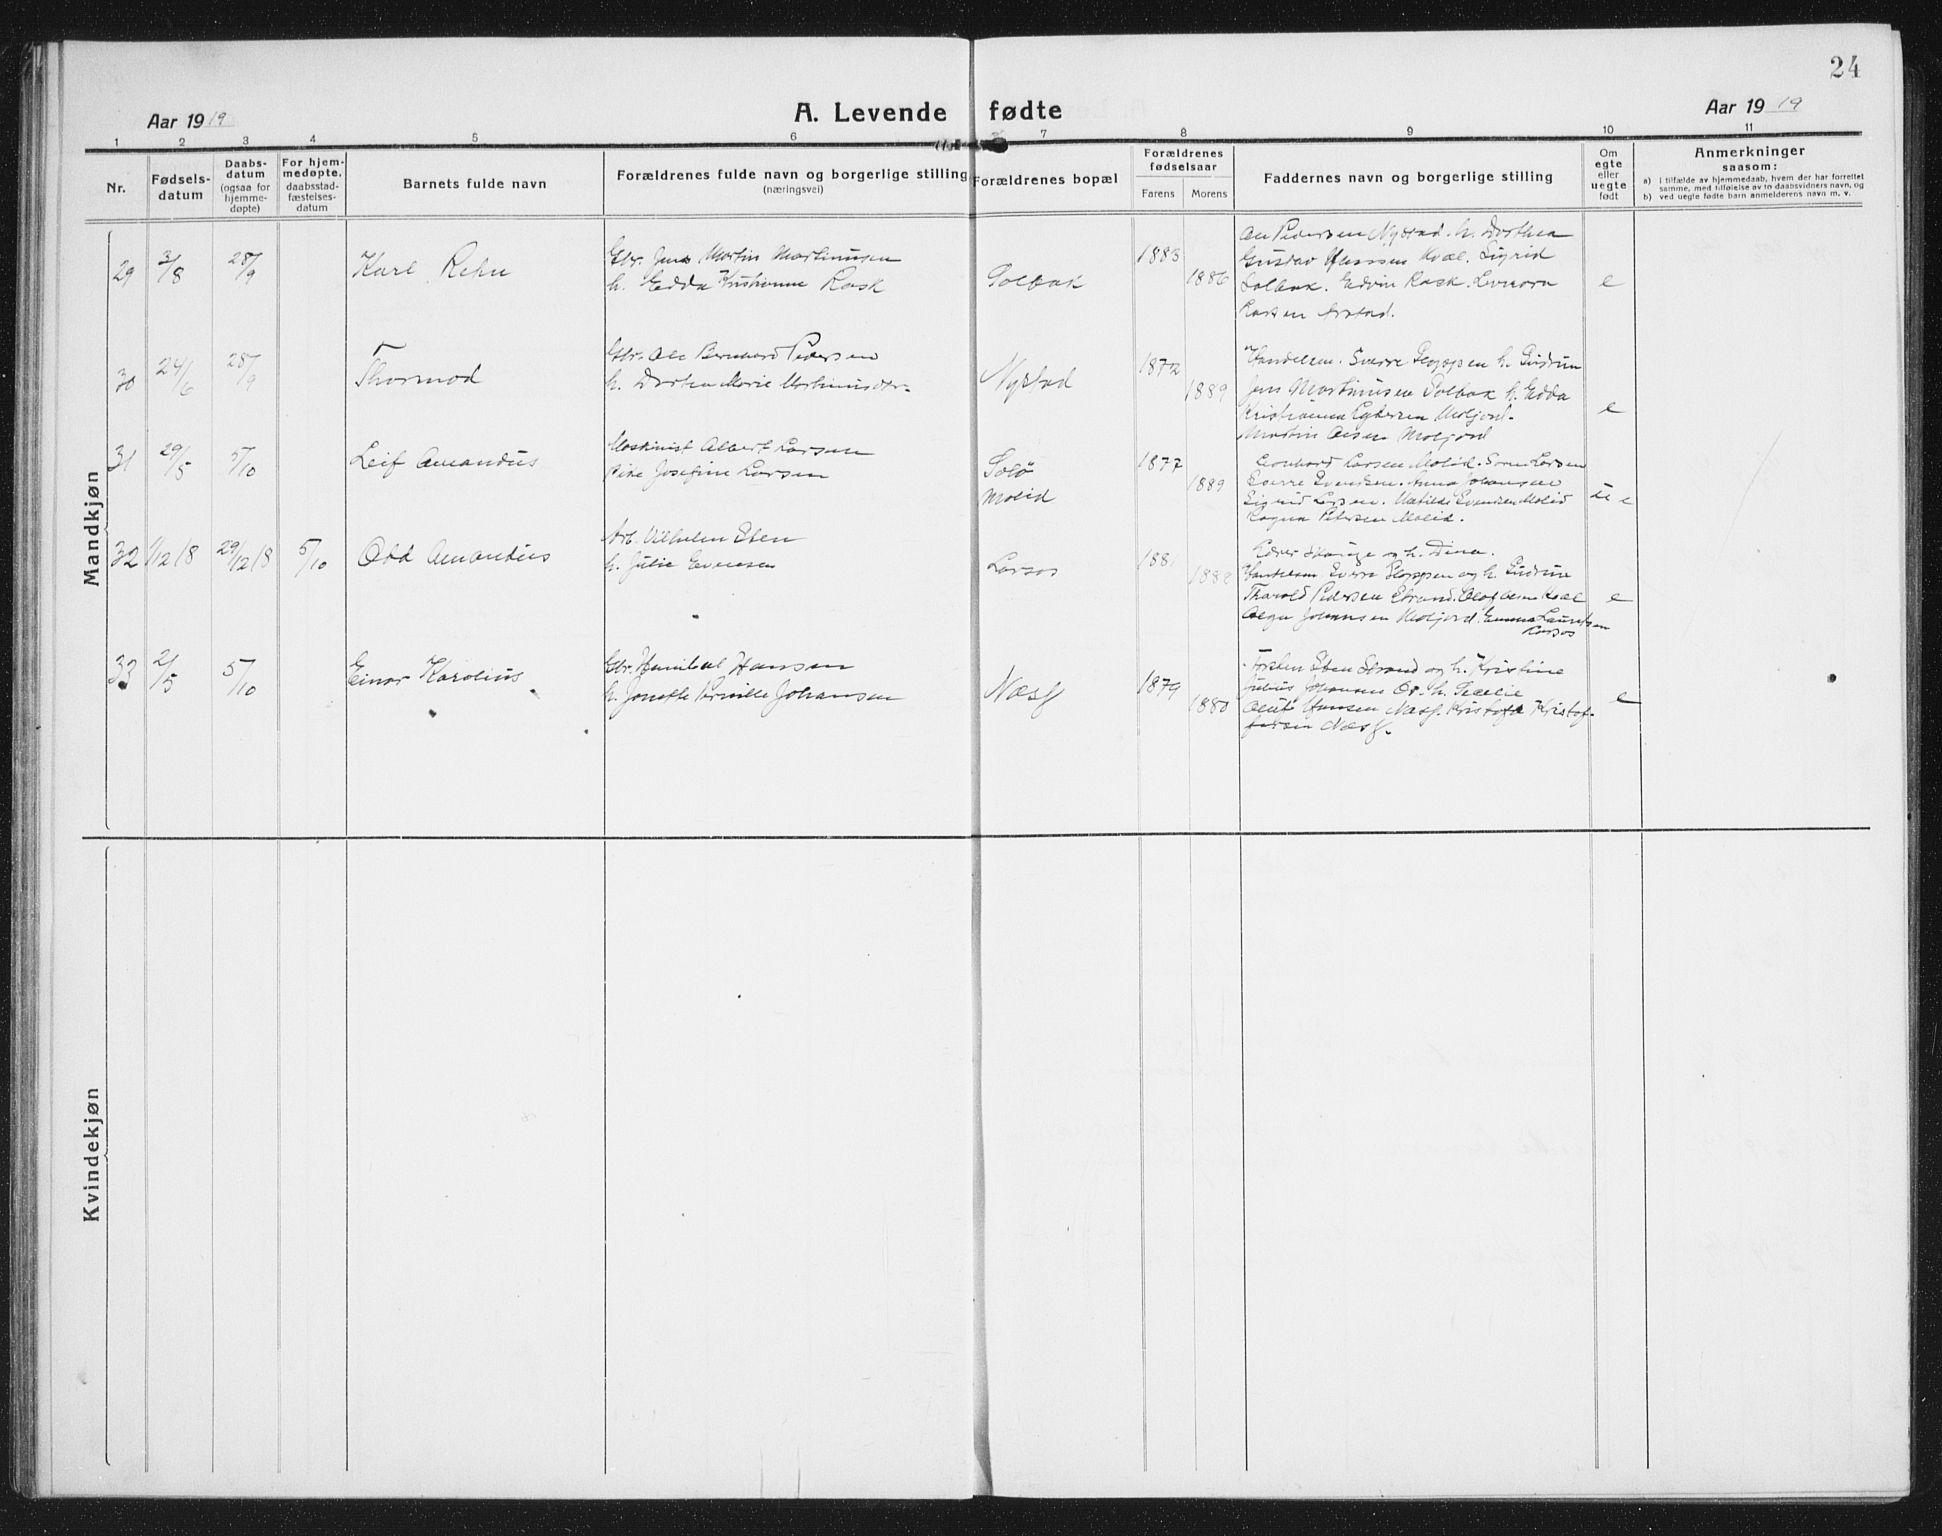 24
Aar 1919
A. Levende fødte
Aar 1919
1 2 3 4 5 6 7 8 9 10 11
Nr.
Fødsels-
datum
Daabs-
datum
(ogsaa for
hjemme-
døpte)
For hjem-
medøpte,
daabsstad-
fæstelses-
datum
Barnets fulde navn
Forældrenes fulde navn og borgerlige stilling
(næringsvei)
Forældrenes bopæl
Forældrenes
fødselsaar
Farens Morens
Faddernes navn og borgerlige stilling
Om
egte
eller
uegte
født
Anmerkninger
saasom:
a) i tilfælde av hjemmedaab, hvem der har forrettet
samme, med tilføielse av to daabsvidners navn, og
b) ved uegte fødte barn anmelderens navn m. v.
Mandkjøn
29 3/8 28/9 Karl Rehn
Gbr. Jens Martin Martinussen
h. Edda Kristianne Rask
Solbak 1883 1886
Ole Pedersen Nystad. h. Dorthea
Gustav Hanssen Kval. Sigrid
Solbak. Edvin Rask. Levnora
Larsen
e
30 24/6 28/9 Thormod
Gbr. Ole Bernhard Pedersen
h. Dortea Marie Martinusdtr.
Nystad 1872 1889
Handelsm. Sverre h. Gudrun
Jens Martinusen Solbak h. Edda
Kristianna Pedersen Moljord.
Martin Olsen Moljord
e
31 29/5 5/10 Leif Amandus
Maskinist Albert Larsen
Pike Josefine Larsen
Solø
Molid
1877 1889
Leonhard Larsen Molid. Larsen
Sverre Evensen. Anna Johansen
Sigrid Larsen. Matilde Evensen Molid
Ragna Petersen Molid.
u e
32 1/12 18 29/12 18 5/10 Odd Amandus
Arb. Vilhelm Eben
h. Julie Evensen
Larsos 1881 1882
og h. Dina.
Handelsm. Sverre og h. Gudrun
Harold Pedersen Strand. Olaf Olsen Kval
Johansen Moljord. Emma Lauritsen
Larsos
e
33 2/5 5/10 Einar Karolius
Gbr. Hanibal Hansen
h. Jonette Pernille Johansen
Næss 1879 1880
Torsten Eben Strand og h. Kristine
Julius Johansen Os. h. Cecelie
Hansen Næss. Kristof-
fersen Næss.
e
Kvindekjøn